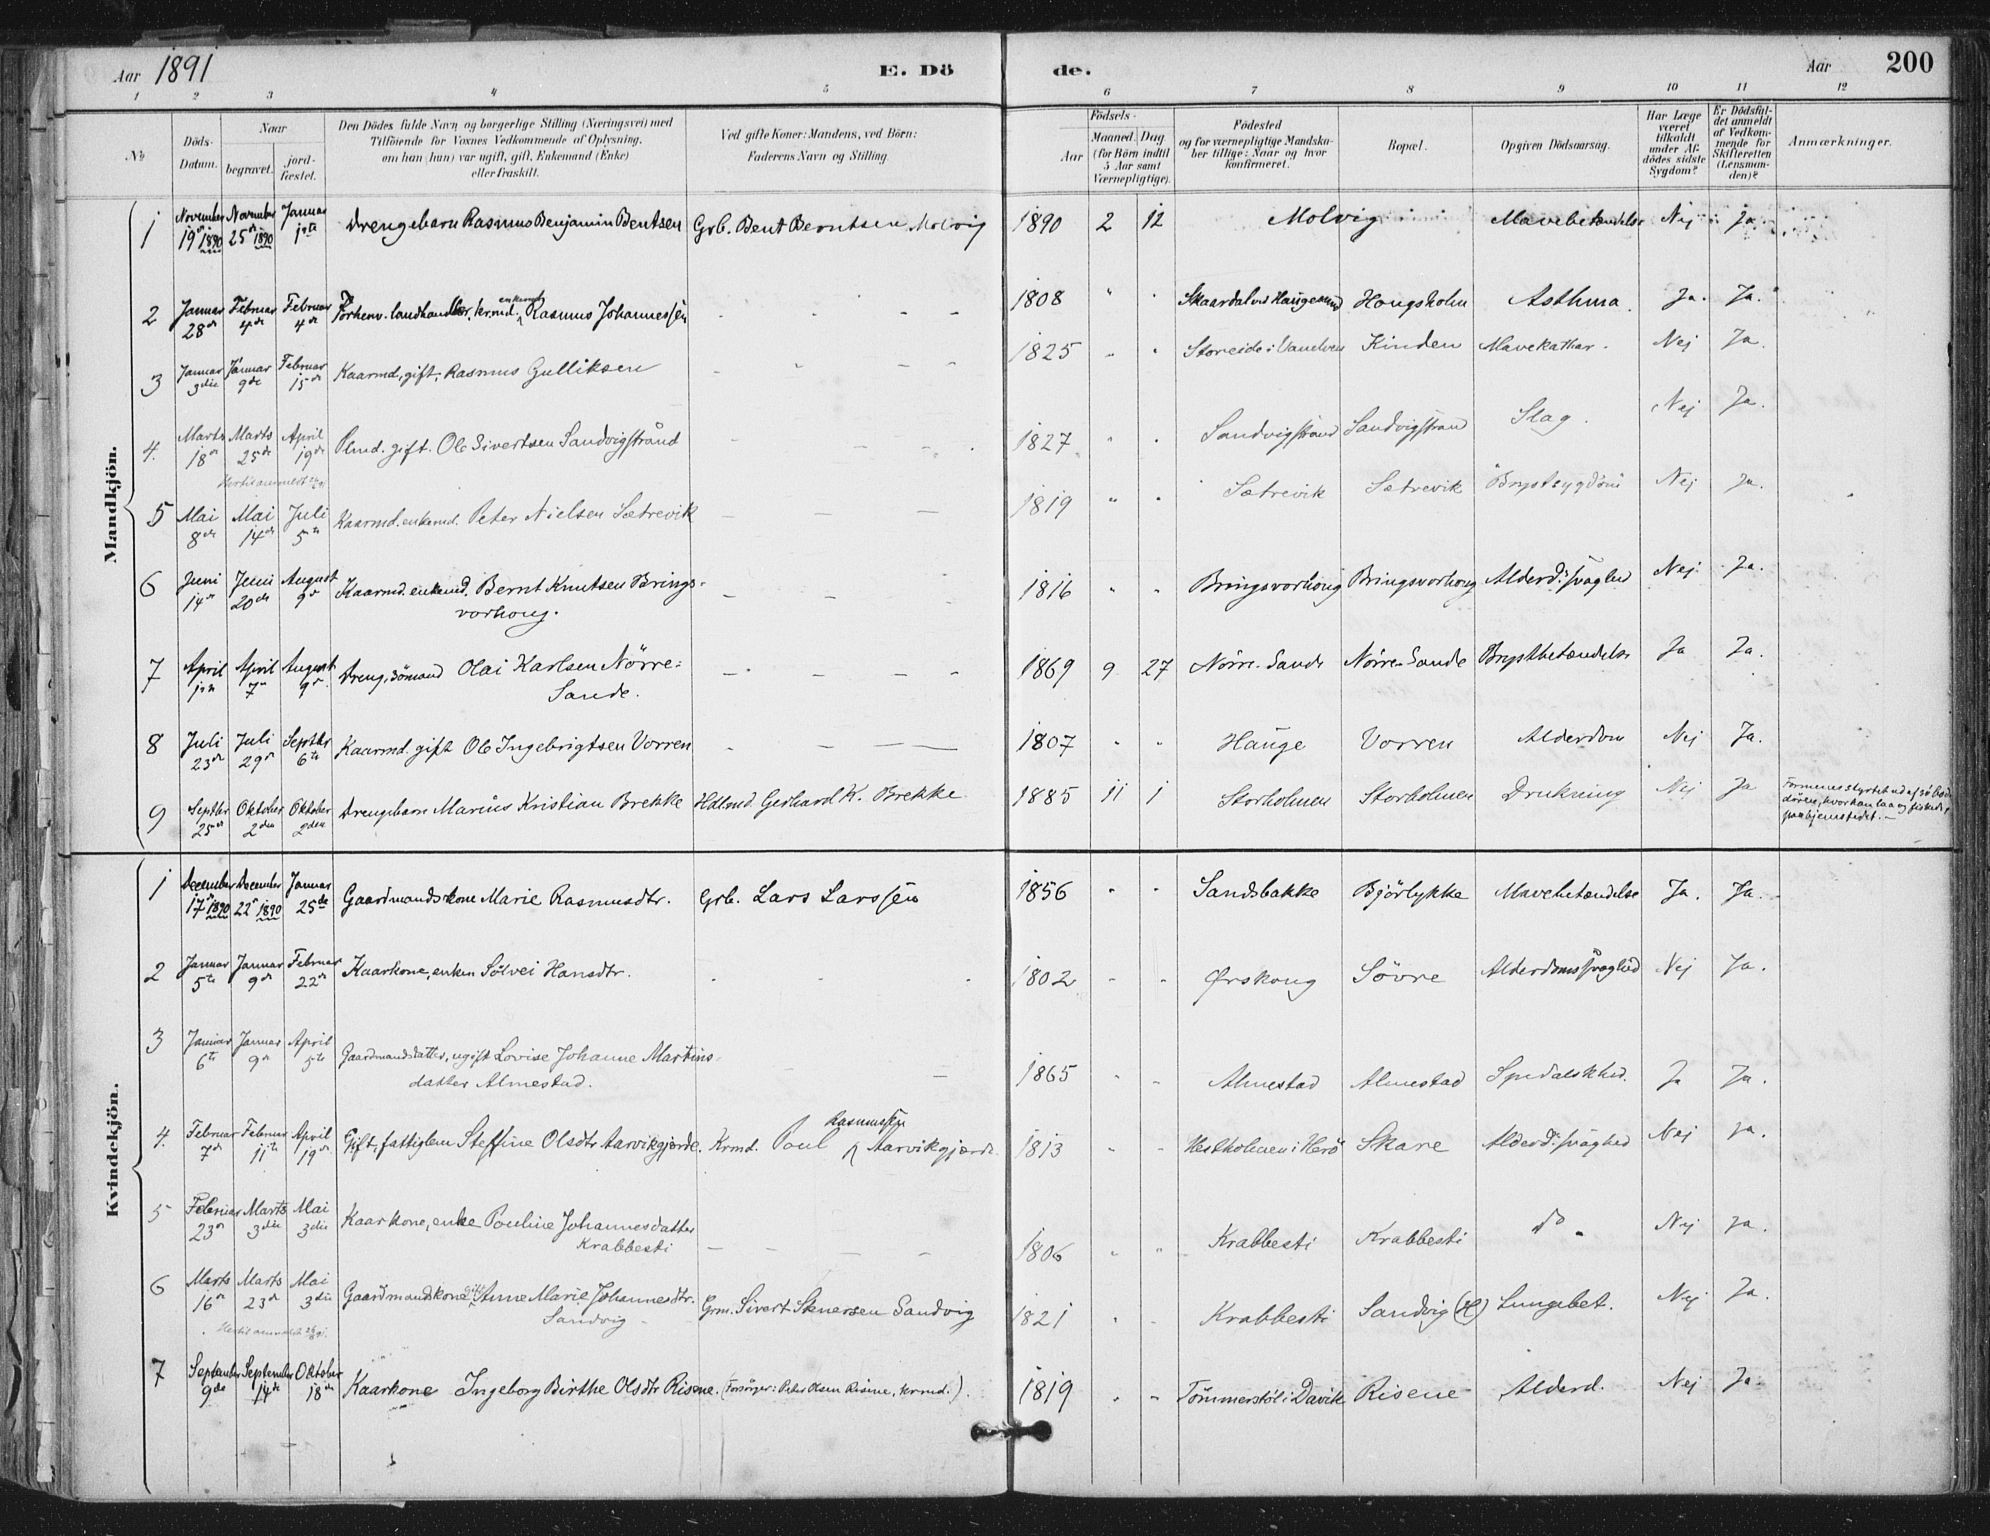 Aar 1891 E. Dö de. Aar 200
1 2 3 4 5 6 7 8 9 10 11 12
No
Döds-Datum.
Naar begravet. jordfæstet.
Den Dödes fulde Navn og borgerlige Stilling (Næringsvei) med
Tilföiende for Voxnes Vedkommende af Oplysning,
om han (hun) var ugift, gift, Enkemand (Enke)
eller fraskilt.
Ved gifte Koner: Mandens, ved Börn:
Faderens Navn og Stilling
Födsels-
Aar Maaned. Dag
(for Börn indtil
5 Aar samt
Værnepligtige).
Födested
og for værnepligtige Mandska-
ber tillige: Naar og hvor
konfirmeret.
Bopæl.
Opgiven Dödsaarsag.
Har Læge
været
tilkaldt
under Af-
dödes sidste
Sygdom?
Er Dödsfal-
det anmeldt
af Vedkom-
mende for
Skifteretten
(Lensman-
den)?
Anmærkninger.
Mandkjön.
1 November 19de 1890 November 25de 1890 Januar 1ste Drengebarn Rasmus Benjamin Bentsen Grb. Bent Berntsen Molvig 1890 2 12 Molvig Mavebetændelse Nej Ja.
2 Januar 28de Februar 4de Februar 4de Forhenv. landhandler, krmd. enkemd. Rasmus Johannessen 1808 " " Skaardal ved Haugesund Hougsholm Asthma. Ja. Ja.
3 Januar 3die Januar 9de Februar 15de Kaarmd, gift, Rasmus Gulliksen 1825 " " Storeide i Vanelven Kinden Mavekathar. Nej Ja.
4. Marts 18de Marts 25de April 19de Plmd. gift. Ole Sivertsen Sandvigstrand 1827 " " Sandvigstrand Sandvigstrand Slag. Nej Ja.
5 Mai 8de Mai 14de Juli 5te Kaarmd. enkemd. Peter Nielsen Sætrevik 1819 " " Sætrevik Sætrevik Brystsygdom Nej Ja.
6 Juni 14de Juni 20de August 9de Kaarmd. enkemd. Bernt Knutsen Brings-
vorhoug. 1816 " " Bringsvorhoug Bringsvorhoug Alderd. svaghed Nej. Ja.
7 April 1ste April 7de August 9de Dreng, sömand Olai Karlsen Nörre-
Sande. 1869 9 27 Nörre-Sande Nörre-Sande Brystbetændelse Ja Ja.
8 Juli 23de Juli 29de Septbr 6te Kaarmd. gift Ole Ingebrigtsen Vorren 1807 " " Hauge Vorren Alderdom Nej Ja.
9 Septbr 25de Oktober 2den Oktober 2den Drengebarn Marius Kristian Brekke Hdlmd. Gerhard K. Brekke 1885 11 1 Storholmen Storholmen Drukning Nej Ja
hvor han laa og fiskede,
paa hjemstedet.
Kvindekjön.
1 December 17de 1890 December 22de 1890 Januar 25de Gaardmandskone Marie Rasmusdtr. Grb. Lars Larssen 1856 " " Sandsbakke Bjørlykke Mavebetændelse Ja. Ja.
2 Januar 5te Januar 9de Februar 22de Kaarkone, enken Sölvei Hansdtr. 1802 " " Ørskoug Sövre Alderdomssvaghed Nej Ja.
3 Januar 6te Januar 9de April 5te Gaardmandsdatter, ugift Lovise Johanne Martins-
datter Almestad. 1865 " " Almestad Almestad Spedalskhed. Ja Ja.
4. Februar 7de Februar 11te April 19de Gift, fattiglem Steffine Olsdtr Aarvikgjærde. Krmd. Poul Rasmussen Aarvikgjærde 1813 " " Hestholmen i Herö Skare Alderd. svaghed Nej Ja.
5 Februar 23de Marts 3die Mai 3die Kaarkone, enke Pouline Johannesdatter
Krabbesti 1806 " " Krabbesti Krabbesti do Nej Ja.
6 Marts 16de Marts 23de Mai 3die Gaardmandskone gift Anne Marie Johannesdtr.
Sandvig Grm. Sivert Stenersen Sandvig 1821 " " Krabbesti Sandvig (H) Lungebet. Nej Ja.
7 September 9de September 14de Oktober 18de Kaarkone Ingeborg Birthe Olsdtr Risene. (Forsörger: Peter Olsen Risene, krmd.). 1819 " " Tömmerstöl i Davik Risene Alderd. Nej Ja.